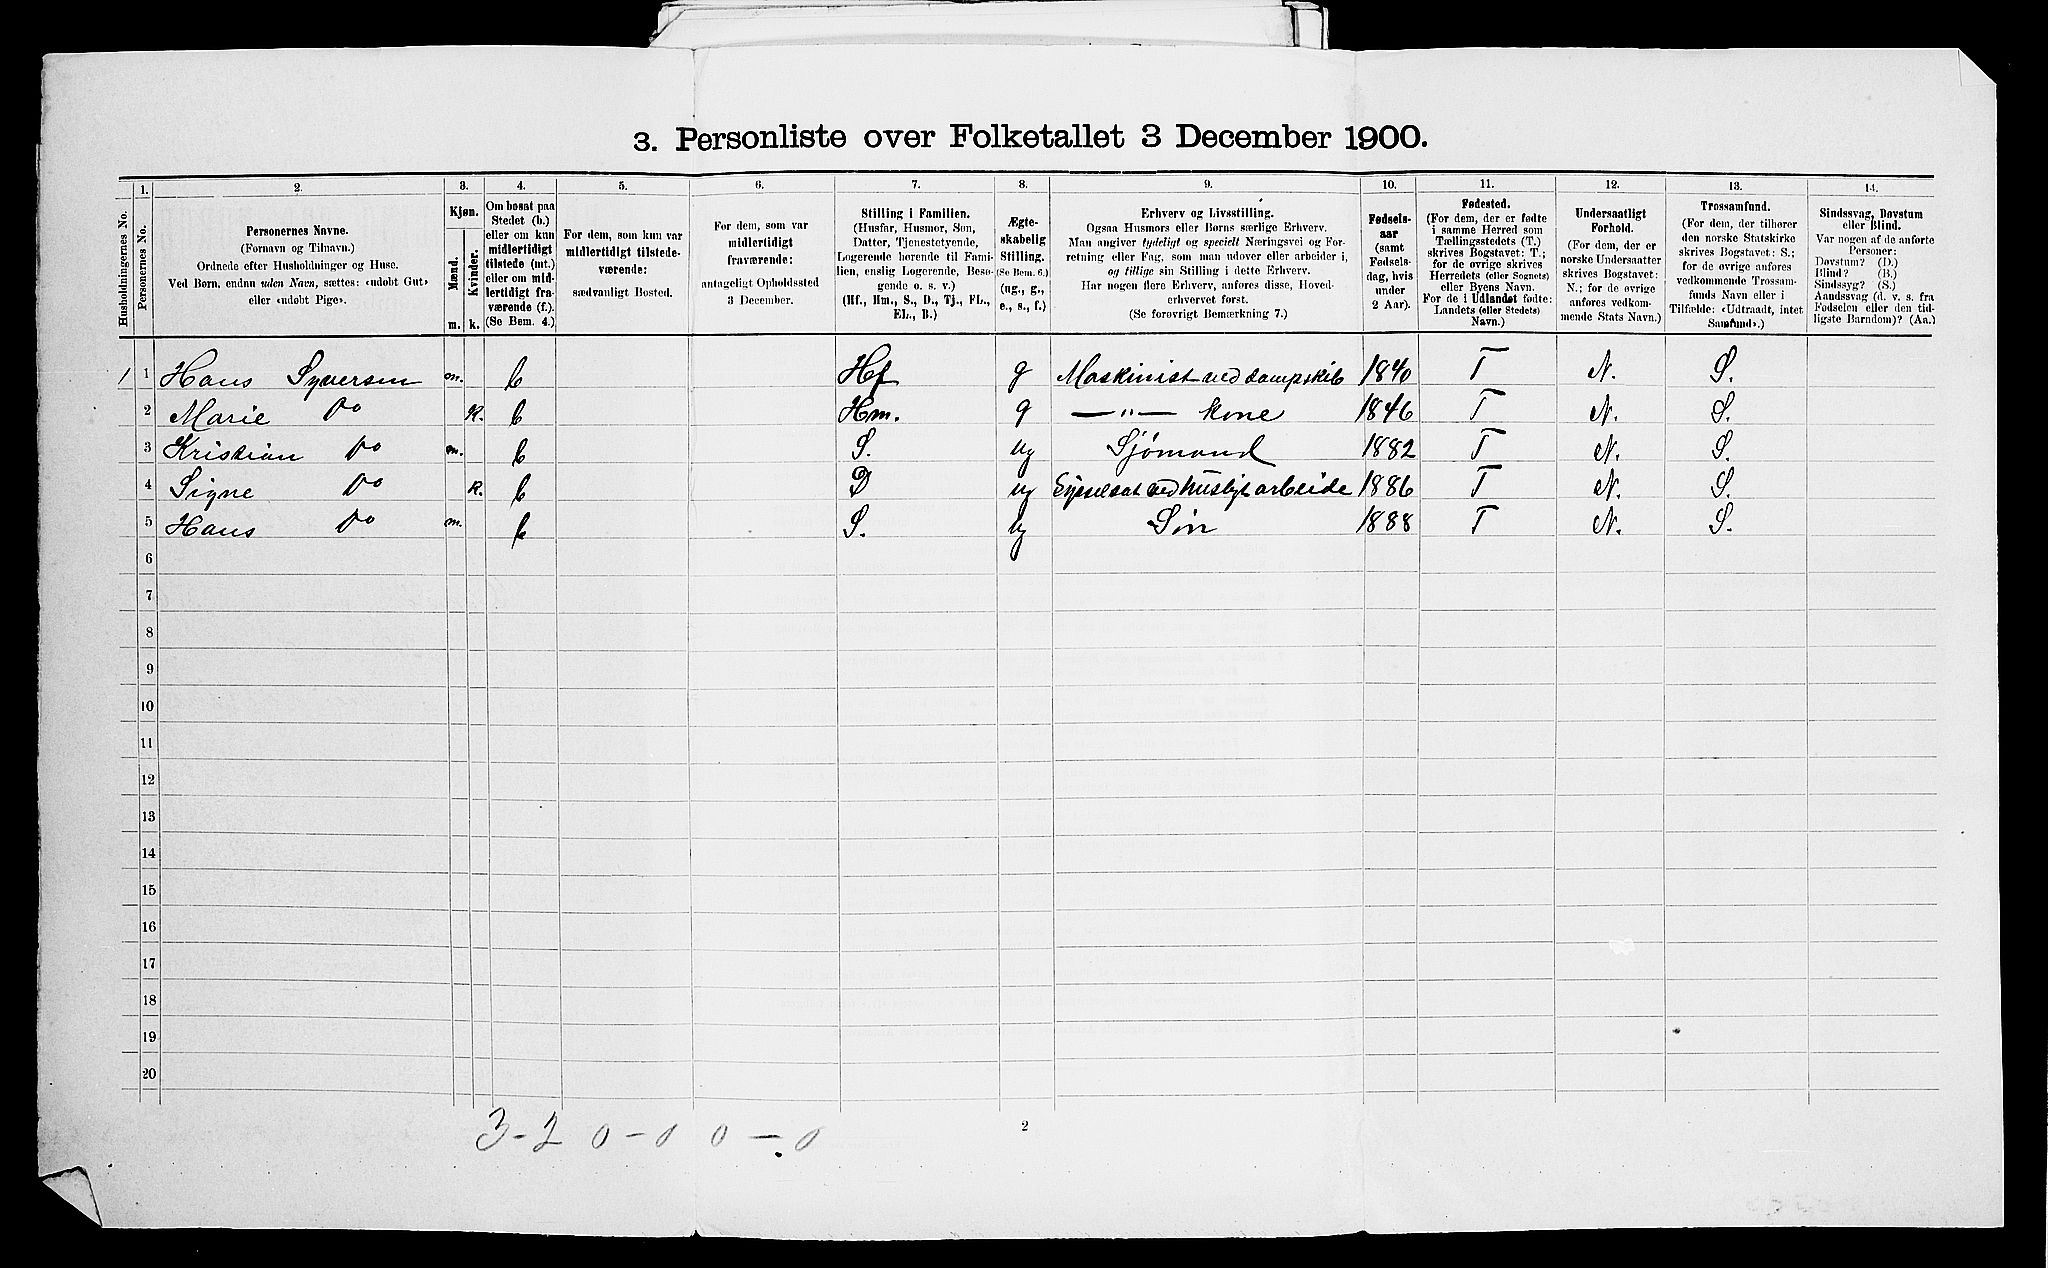 3. Personliste over Folketallet 3 December 1900.
1. 2. 3. 4. 5. 6. 7. 8. 9. 10. 11. 12. 13. 14.
Husholdningernes No.
Personernes No.
Personernes Navne.
(Fornavn og Tilnavn.)
Ordnede efter Husholdninger og Huse.
Ved Børn, endnu uden Navn, sættes: «udøbt Gut»
eller «udøbt Pige».
Kjøn.
Mænd.
Kvinder.
m. k.
Om bosat paa
Stedet (b.)
eller om kun
midlertidigt
tilstede (mt.)
eller om mid-
lertidigt fra-
værende (f.).
(Se Bem. 4.)
For dem, som kun var
midlertidigt tilstede-
værende:
sædvanligt Bosted.
For dem, som var
midlertidigt
fraværende:
antageligt Opholdssted
3 December.
Stilling i Familien.
(Husfar, Husmor, Søn,
Datter, Tjenestetyende,
Logerende hørende til Fami-
lien, enslig Logerende, Besø-
gende o. s. v.)
(Hf., Hm., S., D., Tj., FL.,
EL., B.)
Ægte-
skabelig
Stilling.
(Se Bem. 6.)
(ug., g.,
e., s., f.)
Erhverv og Livsstilling.
Ogsaa Husmors eller Børns særlige Erhverv.
Man angiver tydeligt og specielt Næringsvei og For-
retning eller Fag, som man udøver eller arbeider i,
og tillige sin Stilling i dette Erhverv.
Har nogen flere Erhverv, anføres disse, Hoved-
erhvervet først.
(Se forøvrigt Bemærkning 7.)
Fødsels-
aar
(samt
Fødsels-
dag, hvis
under
2 Aar).
Fødested.
(For dem, der er fødte
i samme Herred som
Tællingsstedets (T.)
skrives Bogstavet: T.;
for de øvrige skrives
Herredets (eller Sognets)
eller Byens Navn.
For de i Udlandet fødte:
Landets (eller Stedets)
Navn.)
Undersaatligt
Forhold.
(For dem, der er
norske Undersaatter
skrives Bogstavet:
N.; for de øvrige
anføres vedkom-
mende Stats Navn.)
Trossamfund.
(For dem, der tilhører
den norske Statskirke
skrives Bogstavet: S.;
for de øvrige anføres
vedkommende Trossam-
funds Navn eller i
Tilfælde: «Udtraadt, intet
Samfund».)
Sindssvag, Døvstum
eller Blind.
Var nogen af de anførte
Personer:
Døvstum? (D.)
Blind? (B.)
Sindssyg? (S.)
Aandssvag (d. v. s. fra
Fødselen eller den tid-
ligste Barndom)? (Aa.)
1 1 Hans Syversen m. b Hf g Maskinist ved dampskib 1840 T N. S.
2 Marie Do K. b Hm. g — „ — kone 1846 T N. S.
3 Kristian Do m. b S. ug Sjømand 1882 T N. S.
4 Signe Do K. b D ug Sysselsat ved husligt arbeide 1886 T N. S.
5 Hans Do m. b S. ug Søn 1888 T N. S.
6
7
8
9
10
11
12
13
14
15
16
17
18
19
20
3-2 0-0 0-0
2